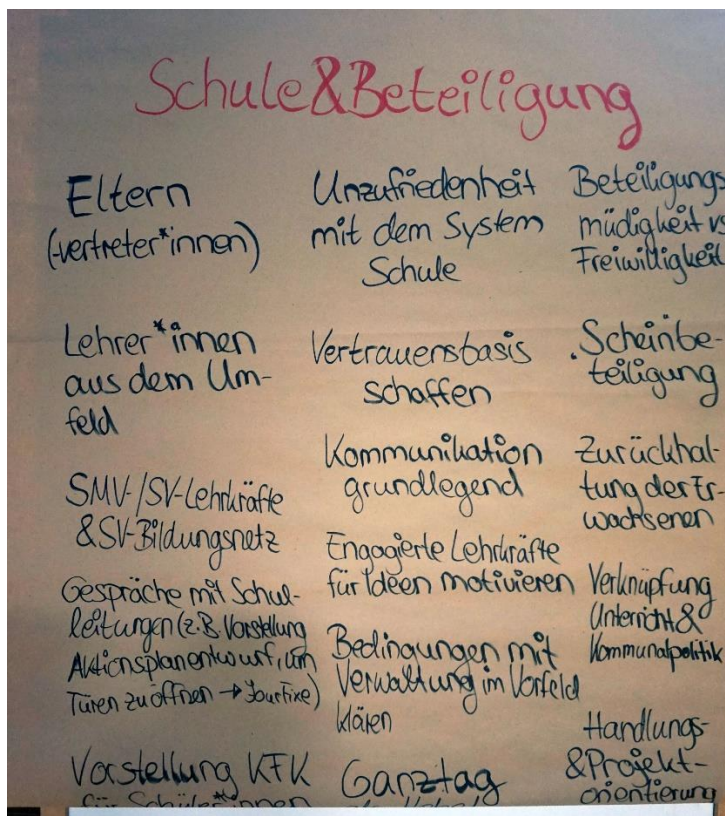 Schule&Beteiligung
Eltern
(-vertreter*innen)
Lehrer*innen
aus dem Um-
feld
SMV-/SV-Lehrkräfte
& SV-Bildungsnetz
Gespräche mit Schul-
leitungen (z.B. Vorstellung
Aktionsplanentwurf, um
Türen zu öffnen → Jour Fixe)
Vorstellung KFK
für Schüler*innen
Unzufriedenheit
mit dem System
Schule
Vertrauensbasis
schaffen
Kommunikation
grundlegend
Engagierte Lehrkräfte
für Ideen motivieren
Bedingungen mit
Verwaltung im Vorfeld
klären
Ganztag
Beteiligungs
müdigkeit vs
Freiwilligkeit
Scheinbe-
teiligung
Zurückhal-
tung der Er-
wachsenen
Verknüpfung
Unterricht &
Kommunalpolitik
Handlungs-
& Projekt-
orientierung